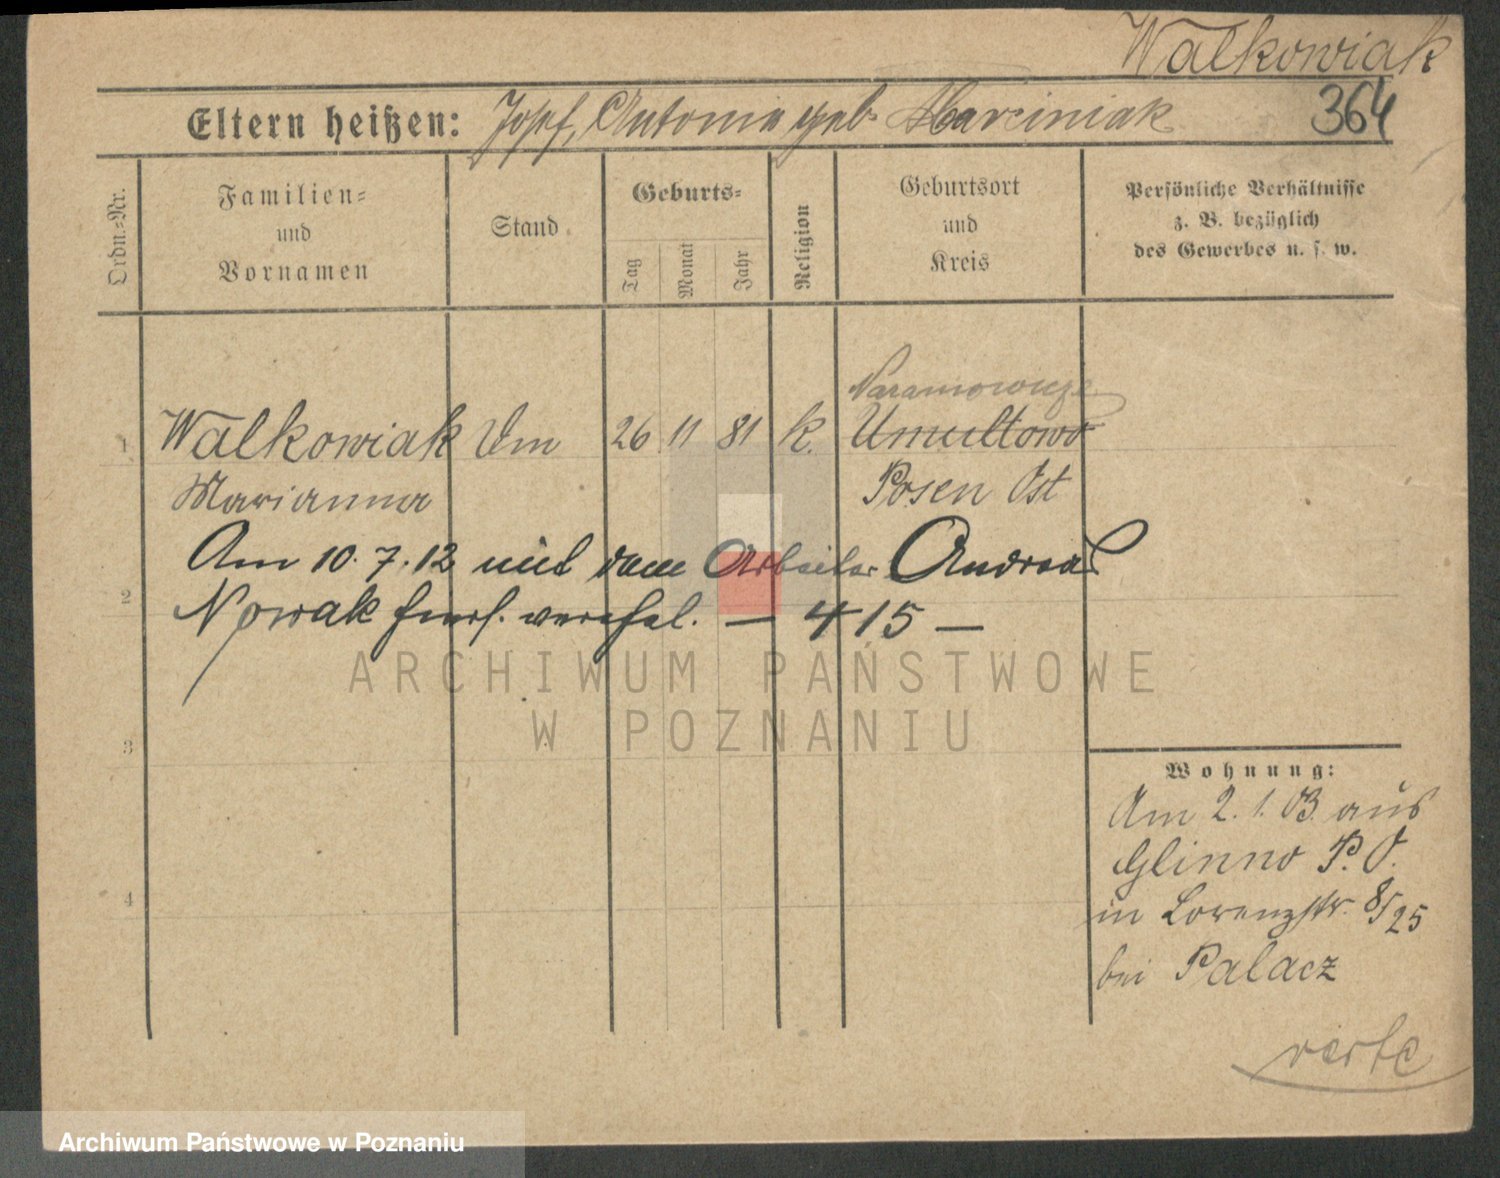 Walkowiak
364
Eltern heißen: Josef, Antonie geb. Marciniak
Ordn.=Nr.
Familien=
und
Vornamen
Stand
Geburts=
Tag
Monat
Jahr
Religion
Geburtsort
und
Kreis
Persönliche Verhältnisse
z. B. bezüglich
des Gewerbes u. s. w.
Naramowice
1 Walkowiak 26 11 81 k. Umultowo
Marianna Posen Ost
Am 10.7.12 mit dem Arbeiter Andreas
2
Nowak verehel. — 415 —
ARCHIWUM PAŃSTWOWE
W POZNANIU
3
4
Wohnung:
Am 2.1.03 aus
Glinno P. O.
in Lorenzstr. 8/25
bei Palacz
verte
Archiwum Państwowe w Poznaniu